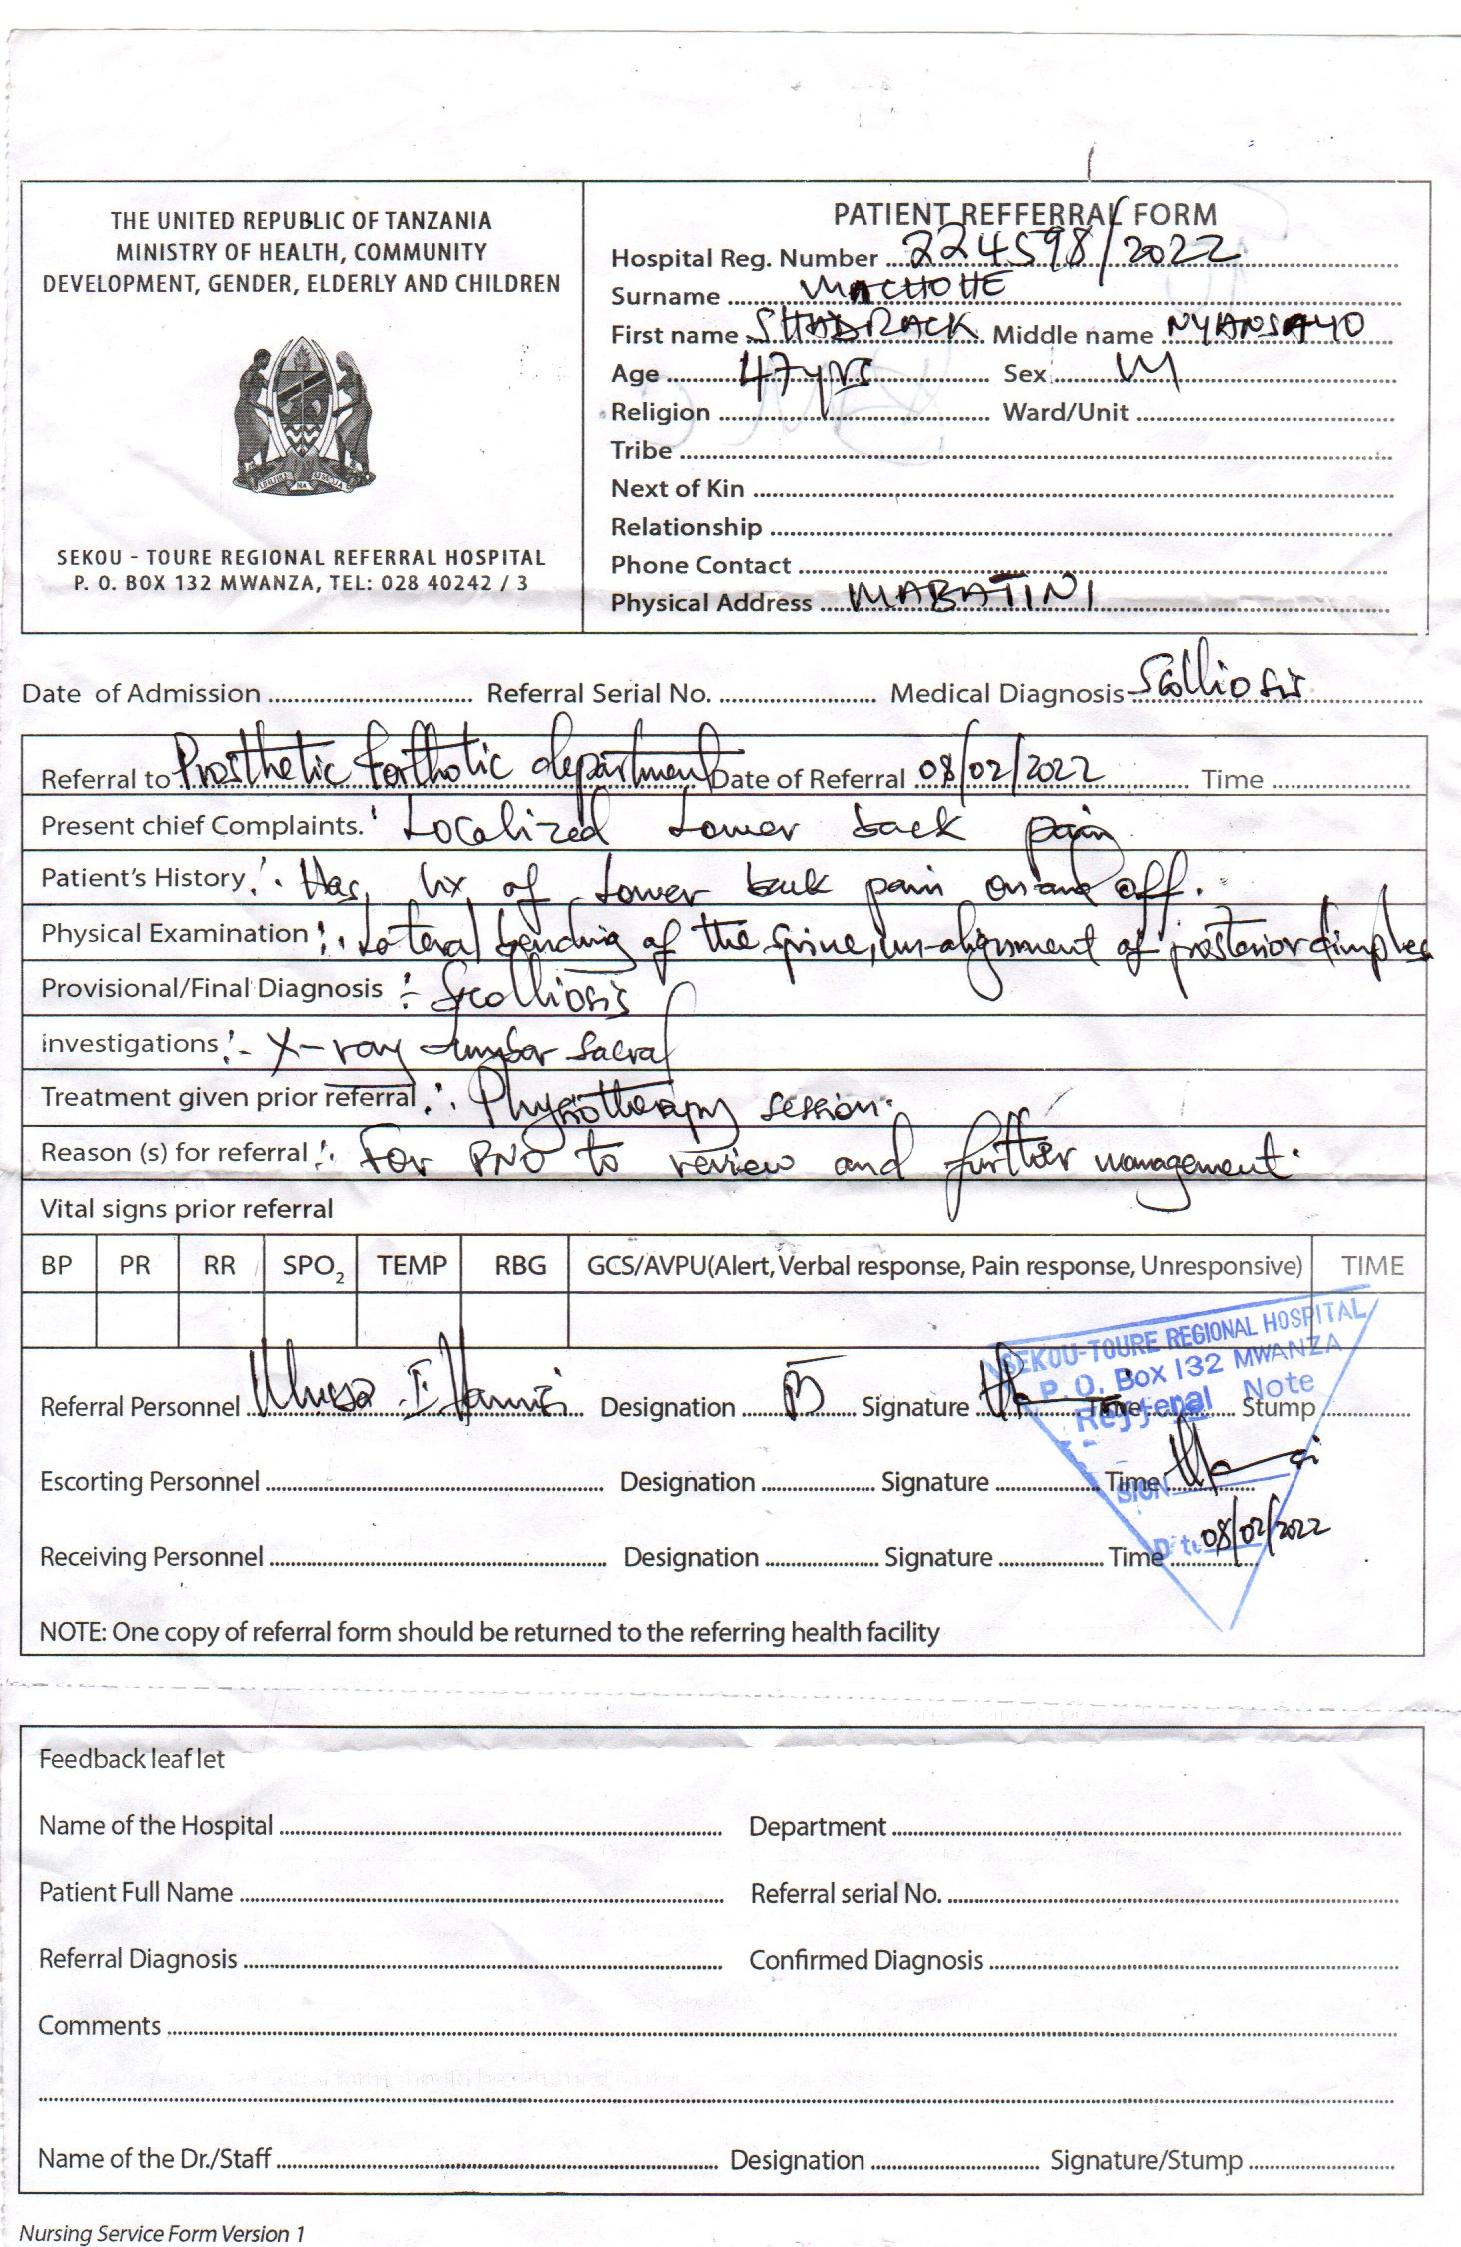 THE UNITED REPUBLIC OF TANZANIA
MINISTRY OF HEALTH, COMMUNITY
DEVELOPMENT, GENDER, ELDERLY AND CHILDREN
SEKOU - TOURE REGIONAL REFERRAL HOSPITAL
P. O. BOX 132 MWANZA, TEL: 028 40242 / 3
PATIENT REFFERRAL FORM
Hospital Reg. Number 224598/2022
Surname MACHOTE
First name SHADRACK Middle name NYANSAYO
Age 47yrs Sex M
Religion Ward/Unit
Tribe
Next of Kin
Relationship
Phone Contact
Physical Address MABATINI
Date of Admission Referral Serial No. Medical Diagnosis Scolliosis
Referral to Prosthetic & orthotic department Date of Referral 08/02/2022 Time
Present chief Complaints. : Localized Lower back pain
Patient's History :. Has hx of Lower back pain on and off.
Physical Examination :. Lateral bending of the spine, un-alignment of posterior dimples
Provisional/Final Diagnosis :- Scolliosis
investigations :- X-ray Lumbar Sacral
Treatment given prior referral :. Physiotherapy session.
Reason (s) for referral :. For PNO to review and further management.
Vital signs prior referral
BP PR RR SPO₂ TEMP RBG GCS/AVPU(Alert, Verbal response, Pain response, Unresponsive) TIME
SEKOU-TOURE REGIONAL HOSPITAL
P. O. Box 132 MWANZA
Refferal Note
Referral Personnel Designation Signature Time Stump
Escorting Personnel Designation Signature Time
SIGN
Receiving Personnel Designation Signature Time
Date 08/02/2022
NOTE: One copy of referral form should be returned to the referring health facility
Feedback leaflet
Name of the Hospital Department
Patient Full Name Referral serial No.
Referral Diagnosis Confirmed Diagnosis
Comments
Name of the Dr./Staff Designation Signature/Stump
Nursing Service Form Version 1